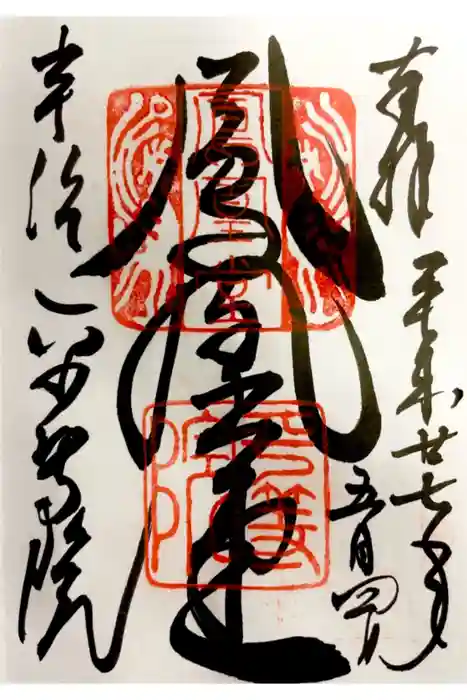 奉拝
平成廿七年
五月四日
鳳凰堂
宇治
平等院